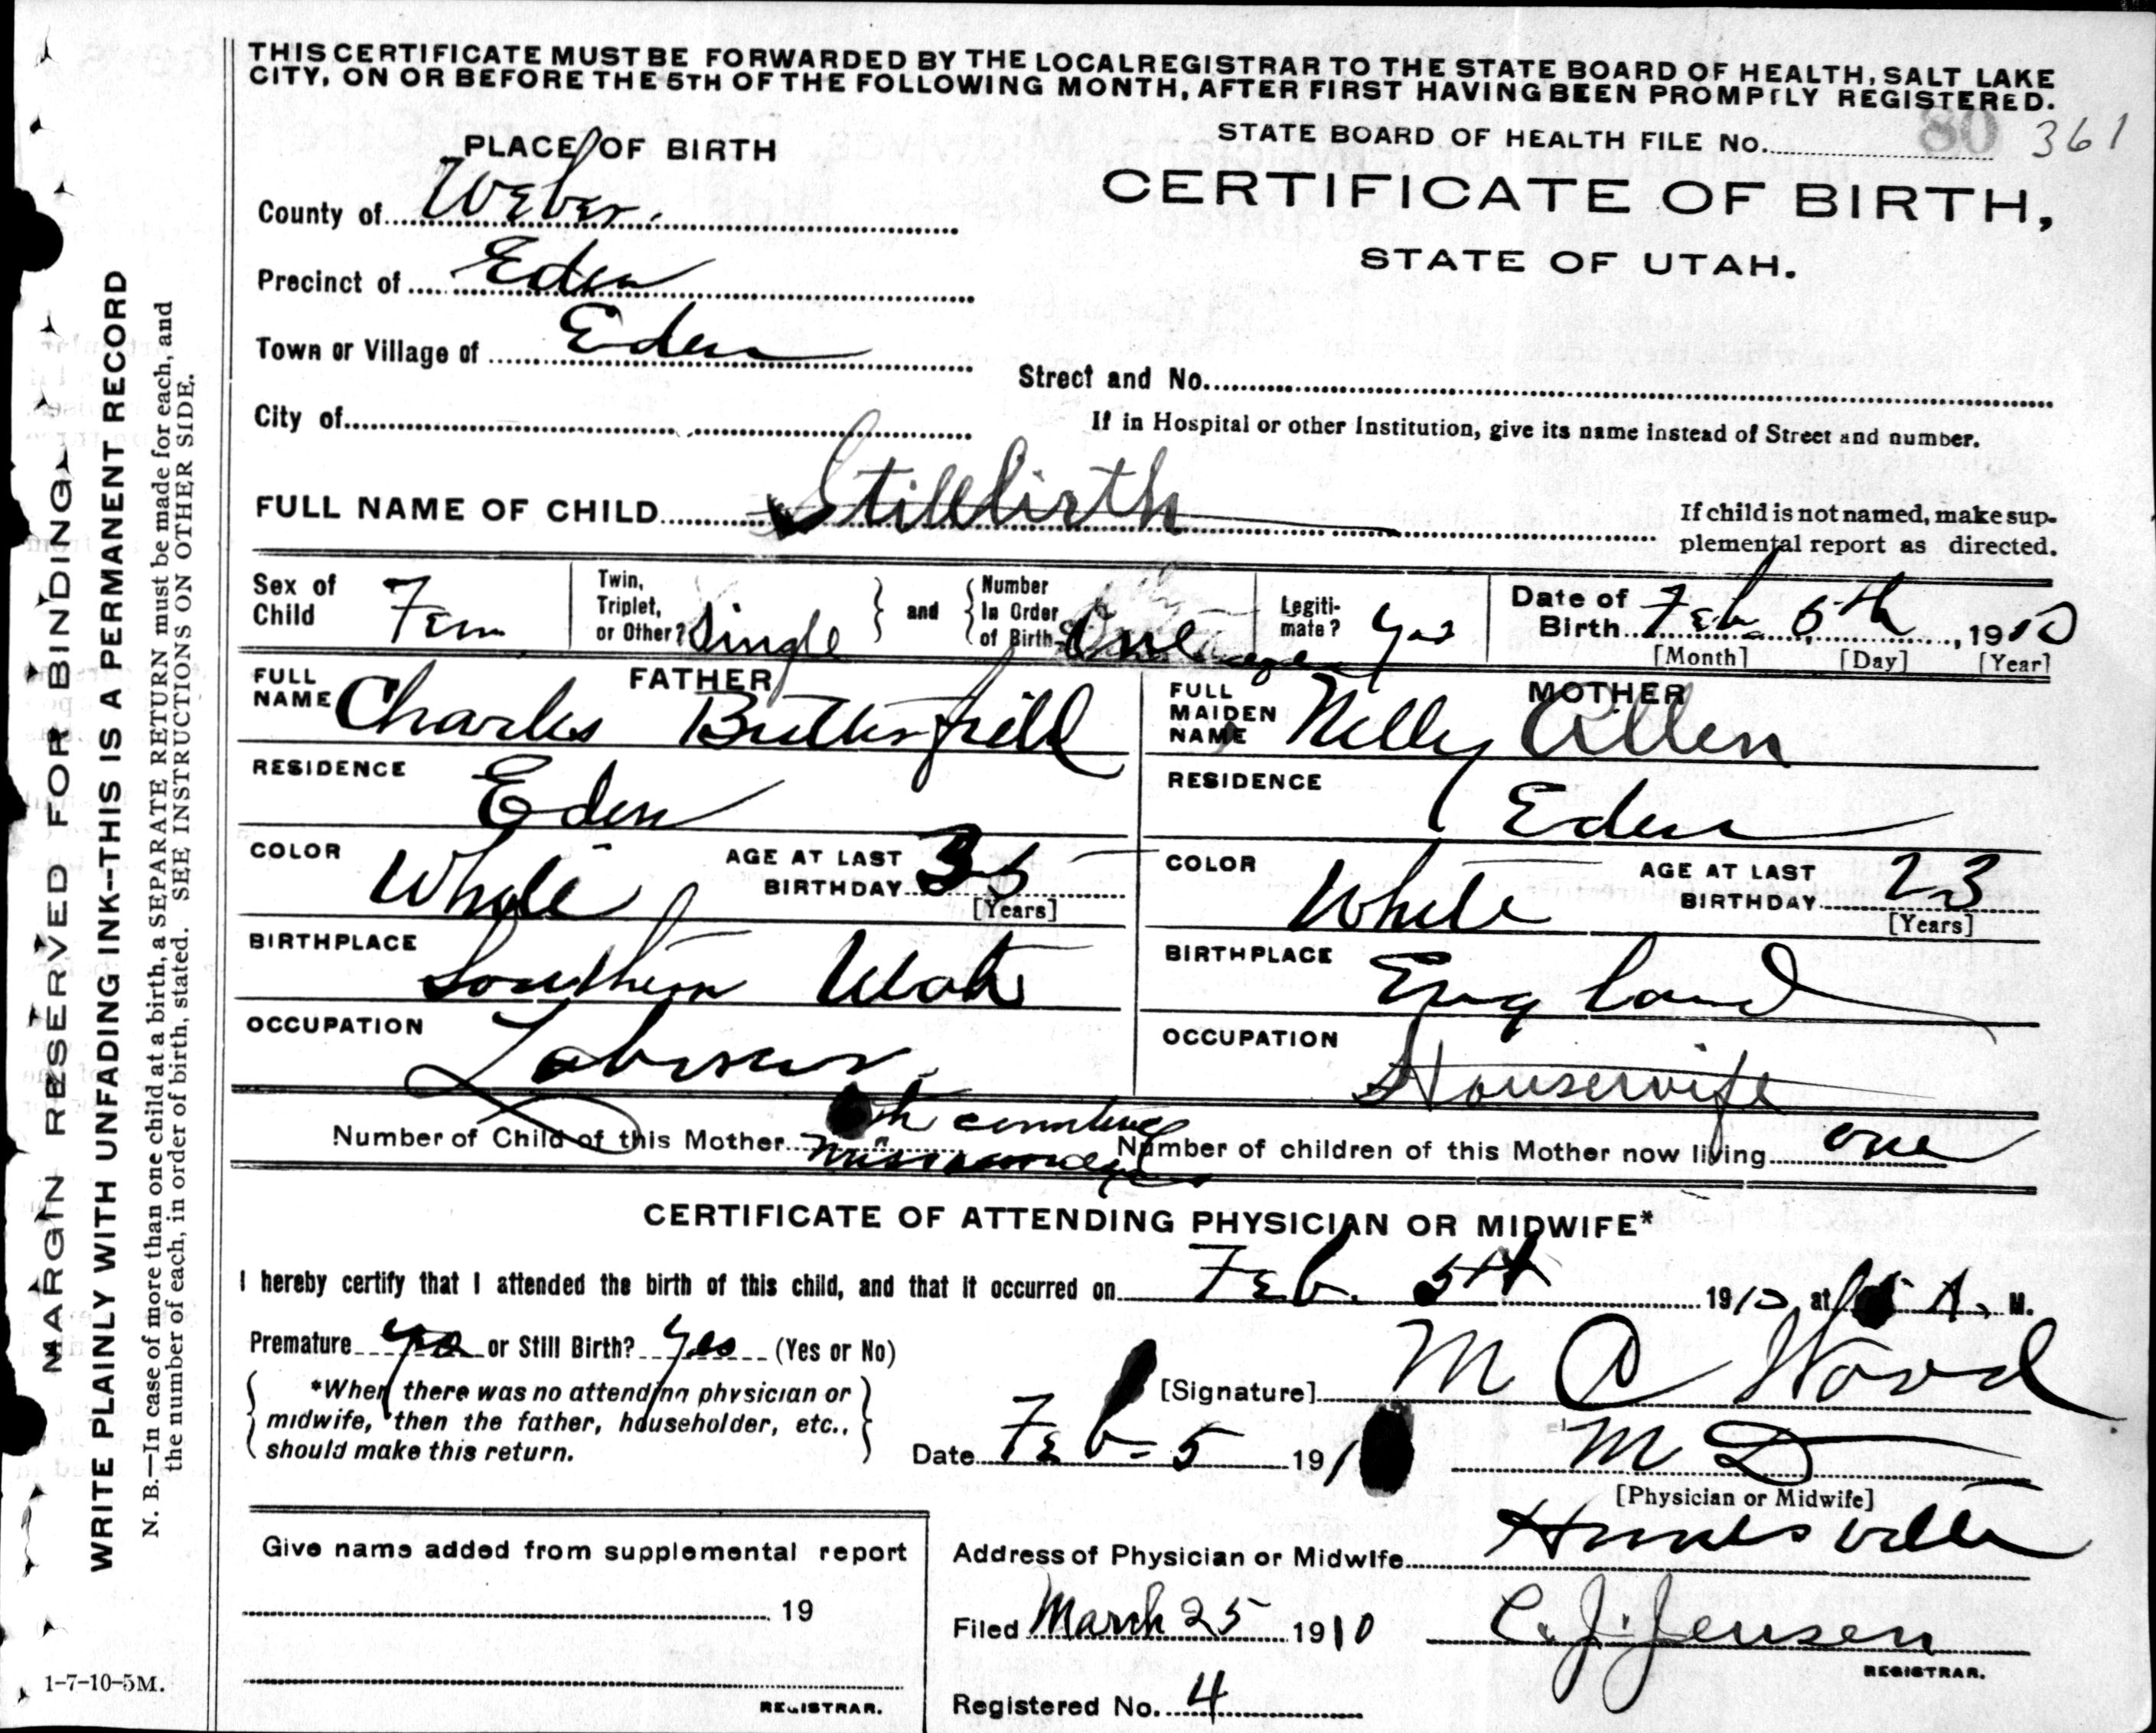 THIS CERTIFICATE MUST BE FORWARDED BY THE LOCAL REGISTRAR TO THE STATE BOARD OF HEALTH, SALT LAKE
CITY, ON OR BEFORE THE 5TH OF THE FOLLOWING MONTH, AFTER FIRST HAVING BEEN PROMPTLY REGISTERED.
STATE BOARD OF HEALTH FILE No. 80 361
PLACE OF BIRTH
CERTIFICATE OF BIRTH,
STATE OF UTAH.
County of Weber.
Precinct of Eden
Town or Village of Eden
Street and No.
City of
If in Hospital or other Institution, give its name instead of Street and number.
FULL NAME OF CHILD Stillbirth
If child is not named, make sup-
plemental report as directed.
Sex of Child Fem
Twin, Triplet, or Other? Single and Number In Order of Birth One
Legiti-mate? Yes
Date of Birth Feb 5th, 1910
[Month] [Day] [Year]
FATHER
FULL NAME Charles Butterfield
RESIDENCE Eden
COLOR White AGE AT LAST BIRTHDAY 35
[Years]
BIRTHPLACE Southern Utah
OCCUPATION Laborer
MOTHER
FULL MAIDEN NAME Nelly Allen
RESIDENCE Eden
COLOR White AGE AT LAST BIRTHDAY 23
[Years]
BIRTHPLACE England
OCCUPATION Housewife
Number of Child of this Mother th counting miscarriages
Number of children of this Mother now living one
CERTIFICATE OF ATTENDING PHYSICIAN OR MIDWIFE*
I hereby certify that I attended the birth of this child, and that it occurred on Feb. 5th 1910, at A. M.
Premature yes or Still Birth? Yes (Yes or No)
*When there was no attending physician or
midwife, then the father, householder, etc.,
should make this return.
[Signature] M C Wood
Date Feb-5 191
M D
[Physician or Midwife]
Address of Physician or Midwife Huntsville
Give name added from supplemental report
19
REGISTRAR.
Filed March 25 1910 C. J. Jensen
REGISTRAR.
Registered No. 4
MARGIN RESERVED FOR BINDING
WRITE PLAINLY WITH UNFADING INK--THIS IS A PERMANENT RECORD
N. B.—In case of more than one child at a birth, a SEPARATE RETURN must be made for each, and
the number of each, in order of birth, stated. SEE INSTRUCTIONS ON OTHER SIDE.
1-7-10-5M.